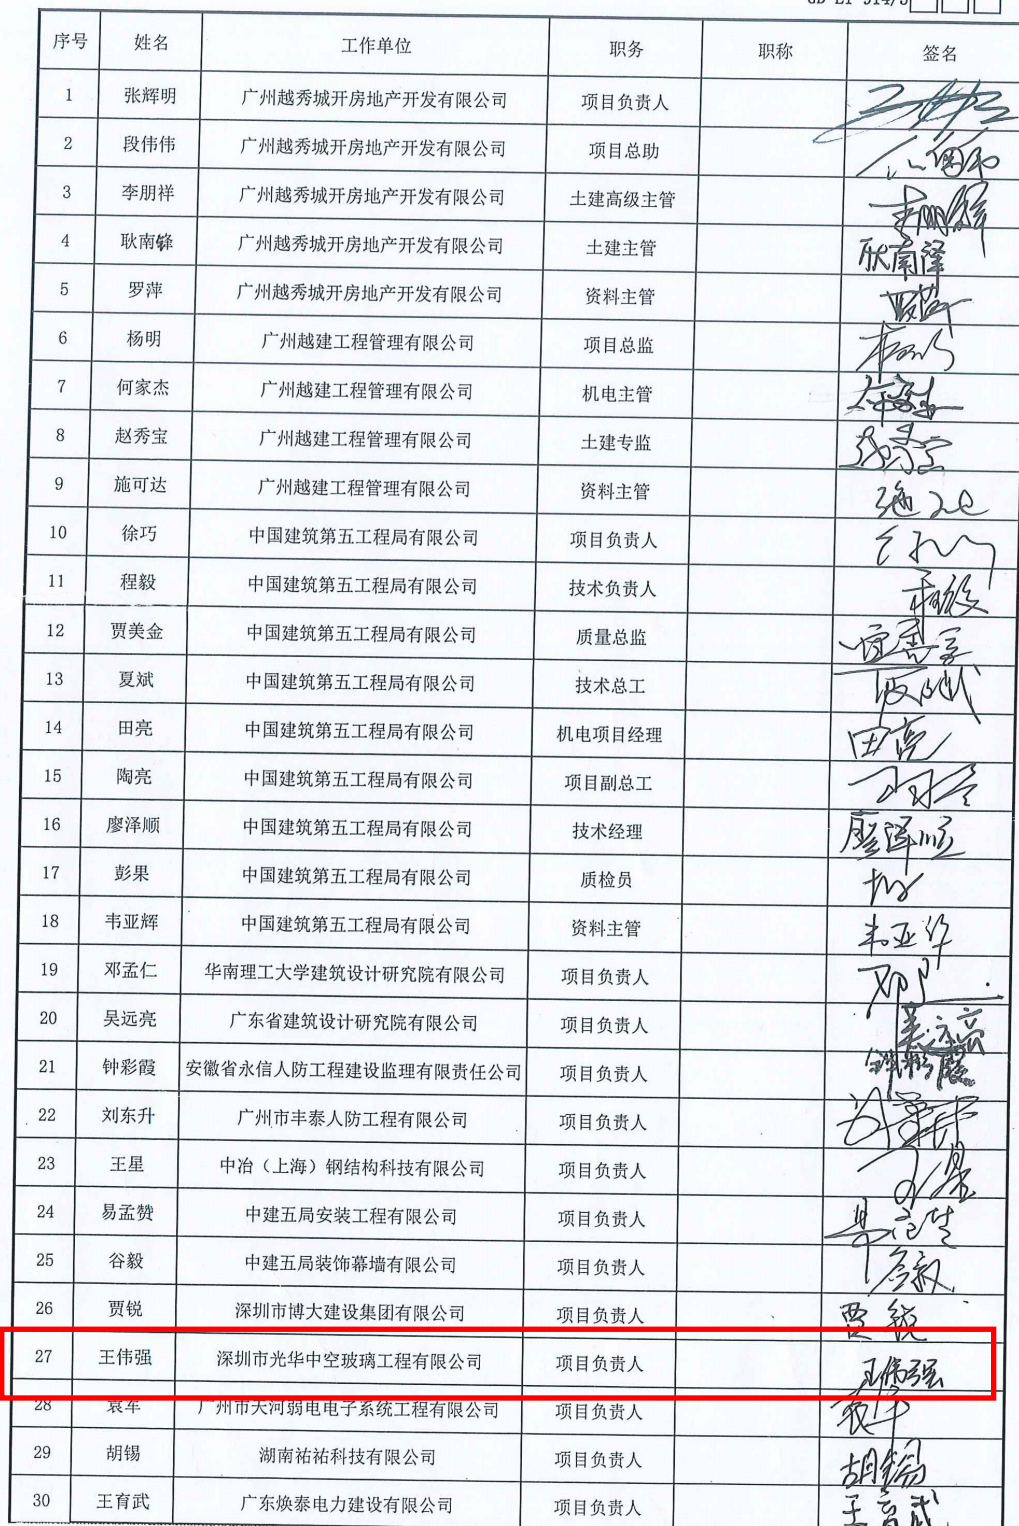 序号 姓名 工作单位 职务 职称 签名
1 张辉明 广州越秀城开房地产开发有限公司 项目负责人
2 段伟伟 广州越秀城开房地产开发有限公司 项目总助
3 李朋祥 广州越秀城开房地产开发有限公司 土建高级主管
4 耿南锋 广州越秀城开房地产开发有限公司 土建主管
5 罗萍 广州越秀城开房地产开发有限公司 资料主管
6 杨明 广州越建工程管理有限公司 项目总监
7 何家杰 广州越建工程管理有限公司 机电主管
8 赵秀宝 广州越建工程管理有限公司 土建专监
9 施可达 广州越建工程管理有限公司 资料主管
10 徐巧 中国建筑第五工程局有限公司 项目负责人
11 程毅 中国建筑第五工程局有限公司 技术负责人
12 贾美金 中国建筑第五工程局有限公司 质量总监
13 夏斌 中国建筑第五工程局有限公司 技术总工
14 田亮 中国建筑第五工程局有限公司 机电项目经理 田亮
15 陶亮 中国建筑第五工程局有限公司 项目副总工
16 廖泽顺 中国建筑第五工程局有限公司 技术经理 廖泽顺
17 彭果 中国建筑第五工程局有限公司 质检员
18 韦亚辉 中国建筑第五工程局有限公司 资料主管
19 邓孟仁 华南理工大学建筑设计研究院有限公司 项目负责人
20 吴远亮 广东省建筑设计研究院有限公司 项目负责人 吴远亮
21 钟彩霞 安徽省永信人防工程建设监理有限责任公司 项目负责人 钟彩霞
22 刘东升 广州市丰泰人防工程有限公司 项目负责人
23 王星 中冶（上海）钢结构科技有限公司 项目负责人
24 易孟赞 中建五局安装工程有限公司 项目负责人
25 谷毅 中建五局装饰幕墙有限公司 项目负责人 谷毅
26 贾锐 深圳市博大建设集团有限公司 项目负责人 贾锐
27 王伟强 深圳市光华中空玻璃工程有限公司 项目负责人 王伟强
28 袁军 广州市天河弱电电子系统工程有限公司 项目负责人 袁军
29 胡锡 湖南祐祐科技有限公司 项目负责人 胡锡
30 王育武 广东焕泰电力建设有限公司 项目负责人 王育武